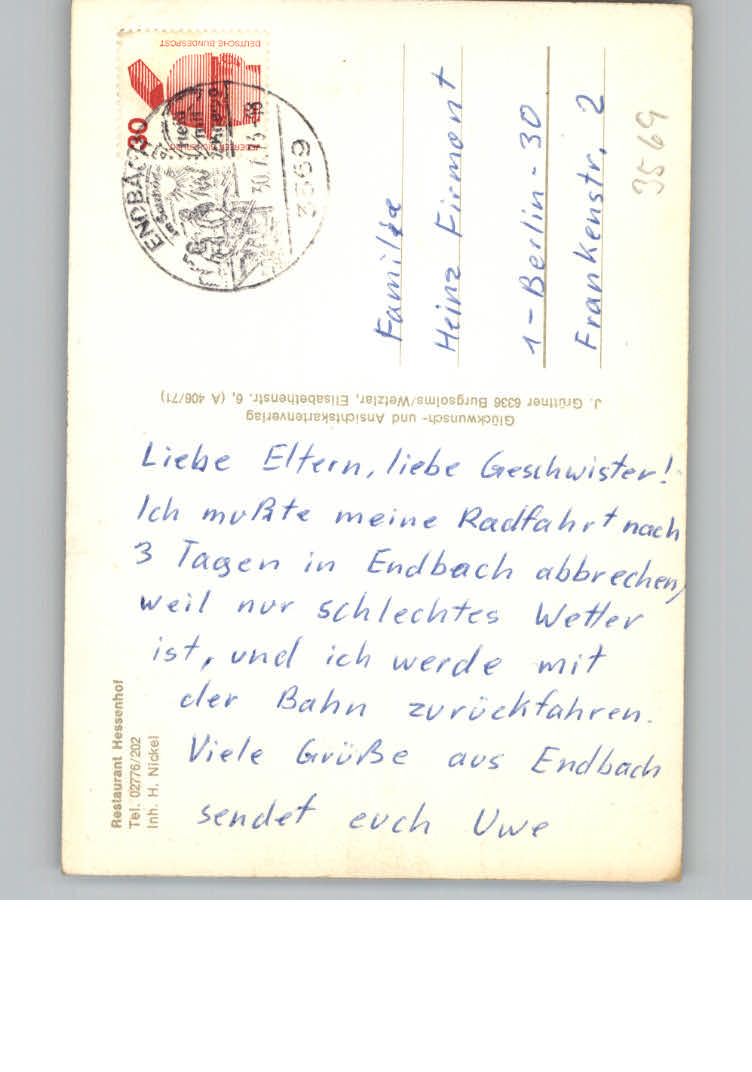 Liebe Eltern, liebe Geschwister!
Ich mußte meine Radfahrt nach
3 Tagen in Endbach abbrechen,
weil nur schlechtes Wetter
ist, und ich werde mit
der Bahn zurückfahren.
Viele Grüße aus Endbach
sendet euch Uwe
Familie
Heinz Firmont
1-Berlin-30
Frankenstr. 2
3569
Glückwunsch- und Ansichtskartenverlag
J. Grüttner 6336 Burgsolms/Wetzlar, Elisabethenstr. 6, (A 406/71)
Restaurant Hessenhof
Tel. 02776/202
Inh. H. Nickel
DEUTSCHE BUNDESPOST
30
JEDERZEIT SICHERHEIT
ENDBACH
3569